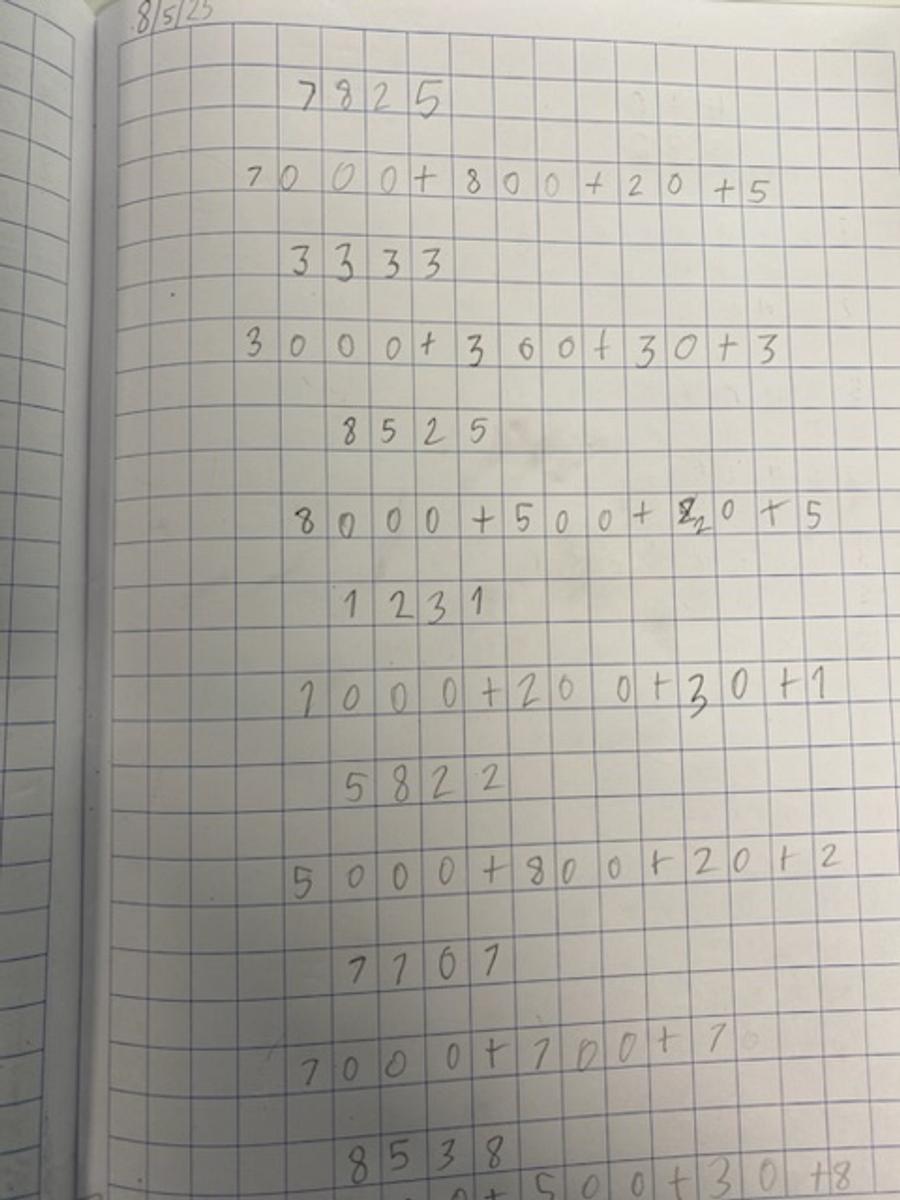 8/5/25
7825
7000+800+20+5
3333
3000+300+30+3
8525
8000+500+20+5
1231
1000+200+30+1
5822
5000+800+20+2
7707
7000+700+7
8538
0+500+30+8